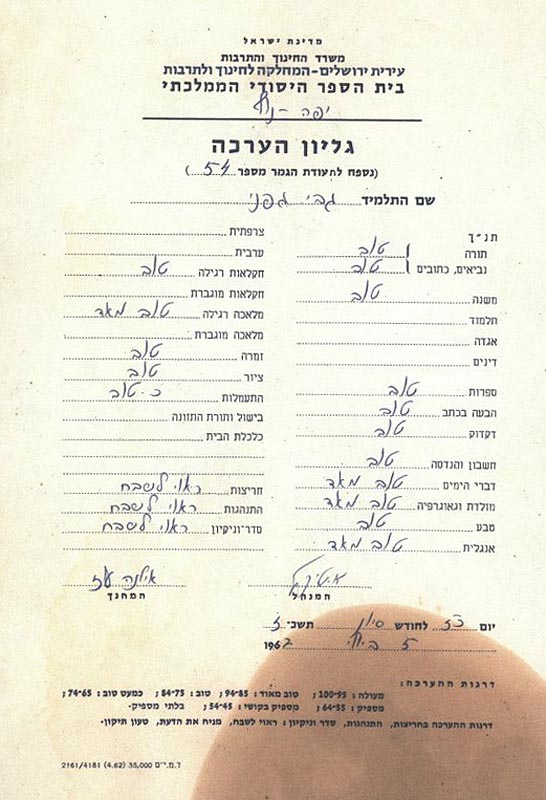 מדינת ישראל
משרד החינוך והתרבות
עירית ירושלים-המחלקה לחינוך ולתרבות
בית הספר היסודי הממלכתי
יפה-נוף
גליון הערכה
(נספח לתעודת הגמר מספר 54)
שם התלמיד גבי גפני
תנ"ך
תורה טוב
נביאים, כתובים טוב
משנה טוב
תלמוד
אגדה
דינים
ספרות טוב
הבעה בכתב טוב
דקדוק טוב
חשבון והנדסה טוב
דברי הימים טוב מאד
מולדת וגאוגרפיה טוב מאד
טבע טוב
אנגלית טוב מאד
צרפתית
ערבית
חקלאות רגילה טוב
חקלאות מוגברת
מלאכה רגילה טוב מאד
מלאכה מוגברת
זמרה טוב
ציור טוב
התעמלות כ.טוב
בישול ותורת התזונה
כלכלת הבית
חריצות ראוי לשבח
התנהגות ראוי לשבח
סדר-וניקיון ראוי לשבח
אילנה עז
המנהל
המחנך
יום כז לחודש סיון תשכ-ז
5 ביולי 1967
דרגות ההערכה:
מעולה: 100-95; טוב מאוד: 94-85; טוב: 84-75; כמעט טוב: 74-65;
מספיק: 64-55; מספיק בקושי: 54-45; בלתי מספיק.
דרגות ההערכה בחריצות, התנהגות, סדר וניקיון: ראוי לשבח, מניח את הדעת, טעון תיקון.
ד.מ.י"ם 35,000 (4.62) 2161/4181